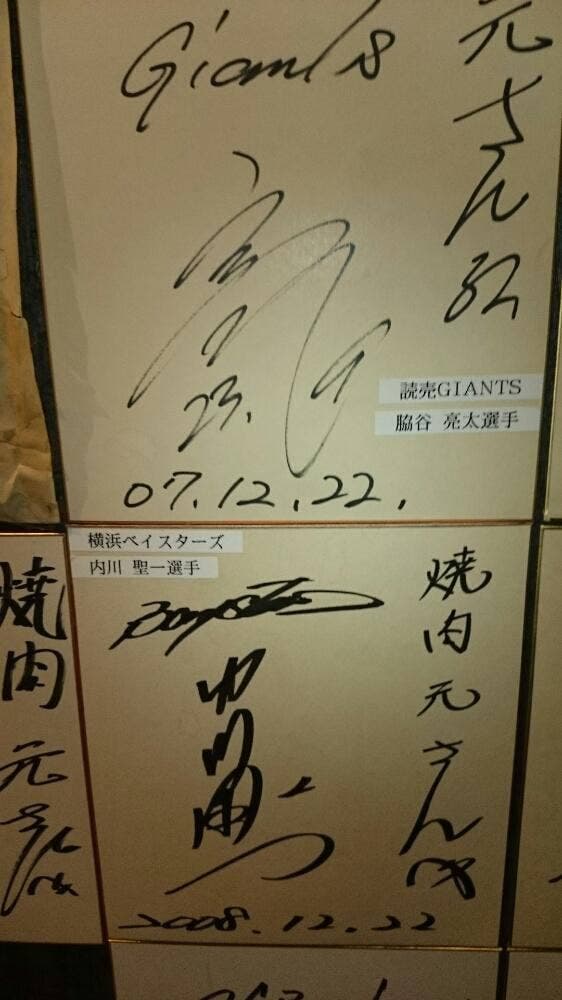 Giants
元さん江
23.
読売GIANTS
脇谷 亮太選手
07.12.22.
横浜ベイスターズ
内川 聖一選手
焼肉 元さん江
内川聖一
2008.12.22
焼肉 元さん江